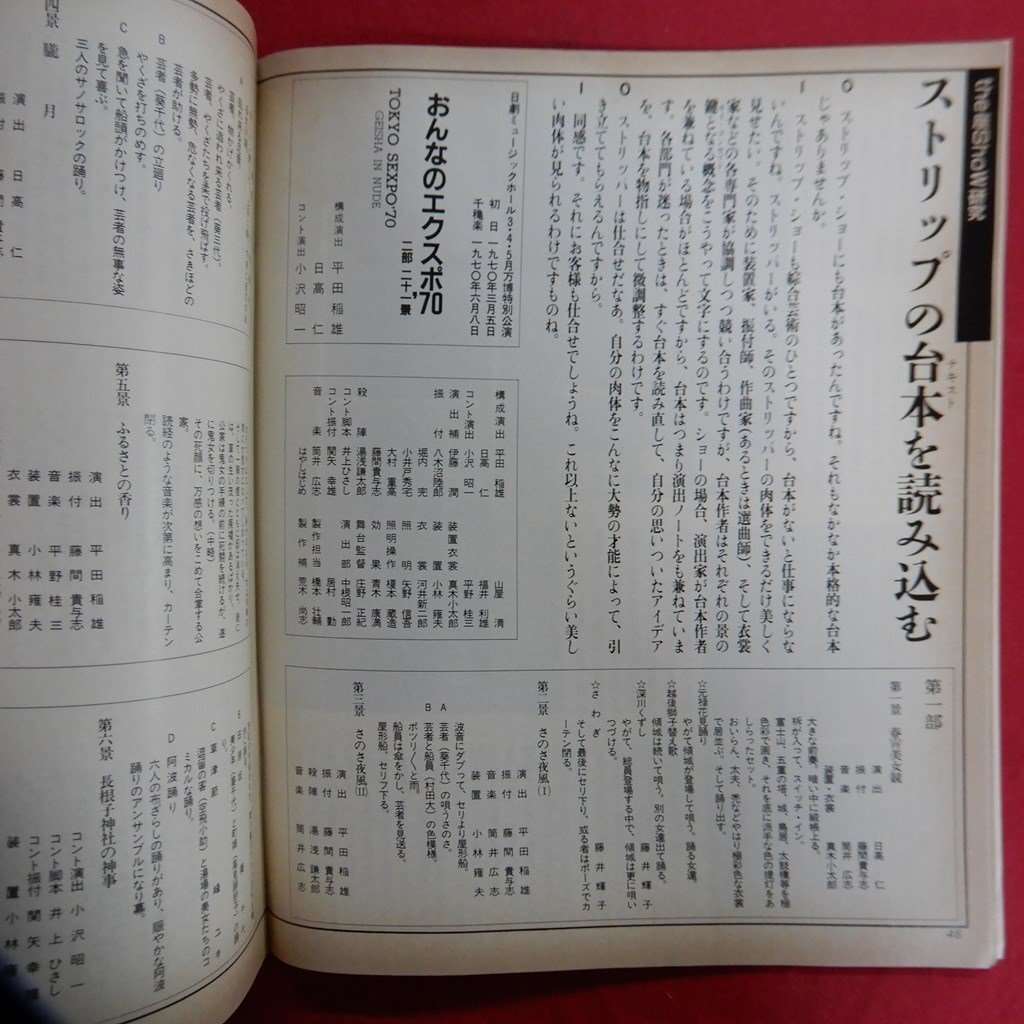 the 脱Show研究
ストリップの台本を読み込む
テキスト
O ストリップ・ショーにも台本があったんですね。それもなかなか本格的な台本
じゃありませんか。
I ストリップ・ショーも綜合芸術のひとつですから、台本がないと仕事にならな
いんですね。ストリッパーがいる。そのストリッパーの肉体をできるだけ美しく
見せたい。そのために装置家、振付師、作曲家（あるときは選曲師）、そして衣裳
家などの各専門家が協調しつつ競い合うわけですが、台本作者はそれぞれの景の
鍵となる概念をこうやって文字にするのです。ショーの場合、演出家が台本作者
を兼ねている場合がほとんどですから、台本はつまり演出ノートをも兼ねていま
す。各部門が迷ったときは、すぐ台本を読み直して、自分の思いついたアイデア
を、台本を物指しにして微調整するわけです。
O ストリッパーは仕合せだなあ。自分の肉体をこんなに大勢の才能によって、引
き立ててもらえるんですから。
I 同感です。それにお客様も仕合せでしょうね。これ以上ないというぐらい美し
い肉体が見られるわけですものね。
日劇ミュージックホール3・4・5月万博特別公演
初日 一九七〇年三月五日
千穐楽 一九七〇年六月八日
おんなのエクスポ'70
二部 二十一景
TOKYO SEXPO'70
GEISHA IN NUDE
構成演出 平田稲雄
日高仁
コント演出 小沢昭一
構成演出 平田稲雄
日高仁
コント演出 小沢昭一
演出補 伊藤潤
振付 八木沼陸郎
堀内完
小井戸秀宅
大村重高
藤間貴与志
殺陣 湯浅謙太郎
コント脚本 井上ひさし
コント振付 関矢幸雄
音楽 筒井広志
はやしはじめ
山屋清
福井利雄
平野桂三
装置衣裳 真木小太郎
装置 小林雍夫
衣裳 河井新二郎
照明 矢野信吾
照明操作 榎本蔵造
効果 青木康満
舞台監督 庄野正紀
演出部 中根昭一郎
居村勤
製作担当 橋本壮輔
製作補 荒木尚志
第一部
第一景 春宵美女競
演出 日高仁
振付 藤間貴与志
音楽 筒井広志
装置・衣裳 真木小太郎
大きな前奏。暗い中に緞帳上る。
柝が入って、スイッチ・イン。
富士山、五重の塔、城、鳥居、太鼓橋等を極
色彩で画き、それを底に派手な色の提灯をあ
しらったセット。
おいらん、太夫、禿などやはり極彩色な衣裳
で居並ぶ。そして踊り出す。
☆元禄花見踊り
やがて傾城が登場して唄う。踊る女達。
☆越後獅子替え歌 藤井輝子
傾城は続いて唄う。別の女達出て踊る。
☆深川くずし
やがて、総員登場する中で、傾城は更に唄い
つづける。
☆さわぎ 藤井輝子
そして最後にセリ下り、或る者はポーズでカ
ーテン閉る。
第二景 さのさ夜風(I)
演出 平田稲雄
振付 藤間貴与志
音楽 筒井広志
装置 小林雍夫
波音にダブって、セリより屋形船。
A 芸者（葵千代）の唄うさのさ。
B 芸者と船員（村田大）の色模様。
ポツリ〳〵と雨。
船員は傘をかし、芸者を見送る。
屋形船、セリ下る。
第三景 さのさ夜風(II)
演出 平田稲雄
振付 藤間貴与志
殺陣 湯浅謙太郎
音楽 筒井広志
46
B 芸者（葵千代）の立廻り
やくざを打ちのめす。
C 急を聞いて船頭がかけつけ、芸者の無事な姿
を見て喜ぶ。
三人のサノサロックの踊り。
四景 朧月
演出 日高仁
家。
その死顔に、万感の想いをこめて合掌する公
読経のような音楽が次第に高まり、カーテン
閉る。
第五景 ふるさとの香り
演出 平田稲雄
振付 藤間貴与志
音楽 平野桂三
装置 小林雍夫
衣裳 真木小太郎
C 草津節
逗留の客（空飛小助）と湯場の美女たちのコ
ミカルな踊り。
D 阿波踊り
六人の布ざらしの踊りがあり、賑やかな阿波
踊りのアンサンブルになり幕。
第六景 長根子神社の神事
コント演出 小沢昭一
コント脚本 井上ひさし
コント振付 関矢幸雄